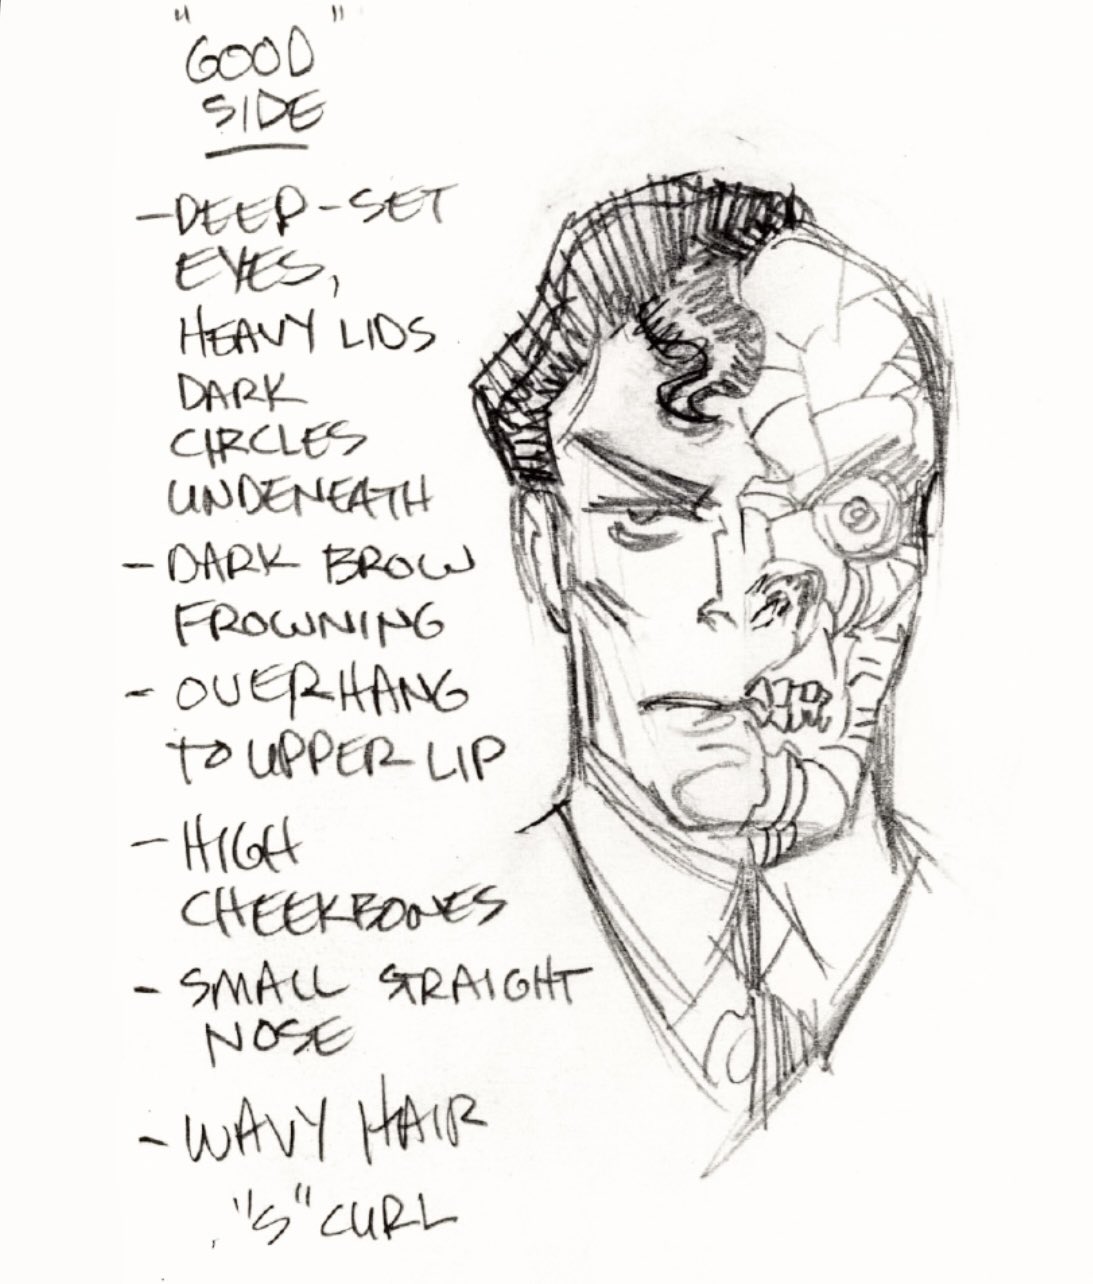 "GOOD"
SIDE
- DEEP-SET
EYES,
HEAVY LIDS
DARK
CIRCLES
UNDENEATH
- DARK BROW
FROWNING
- OVERHANG
TO UPPER LIP
- HIGH
CHEEKBONES
- SMALL STRAIGHT
NOSE
- WAVY HAIR
"S" CURL